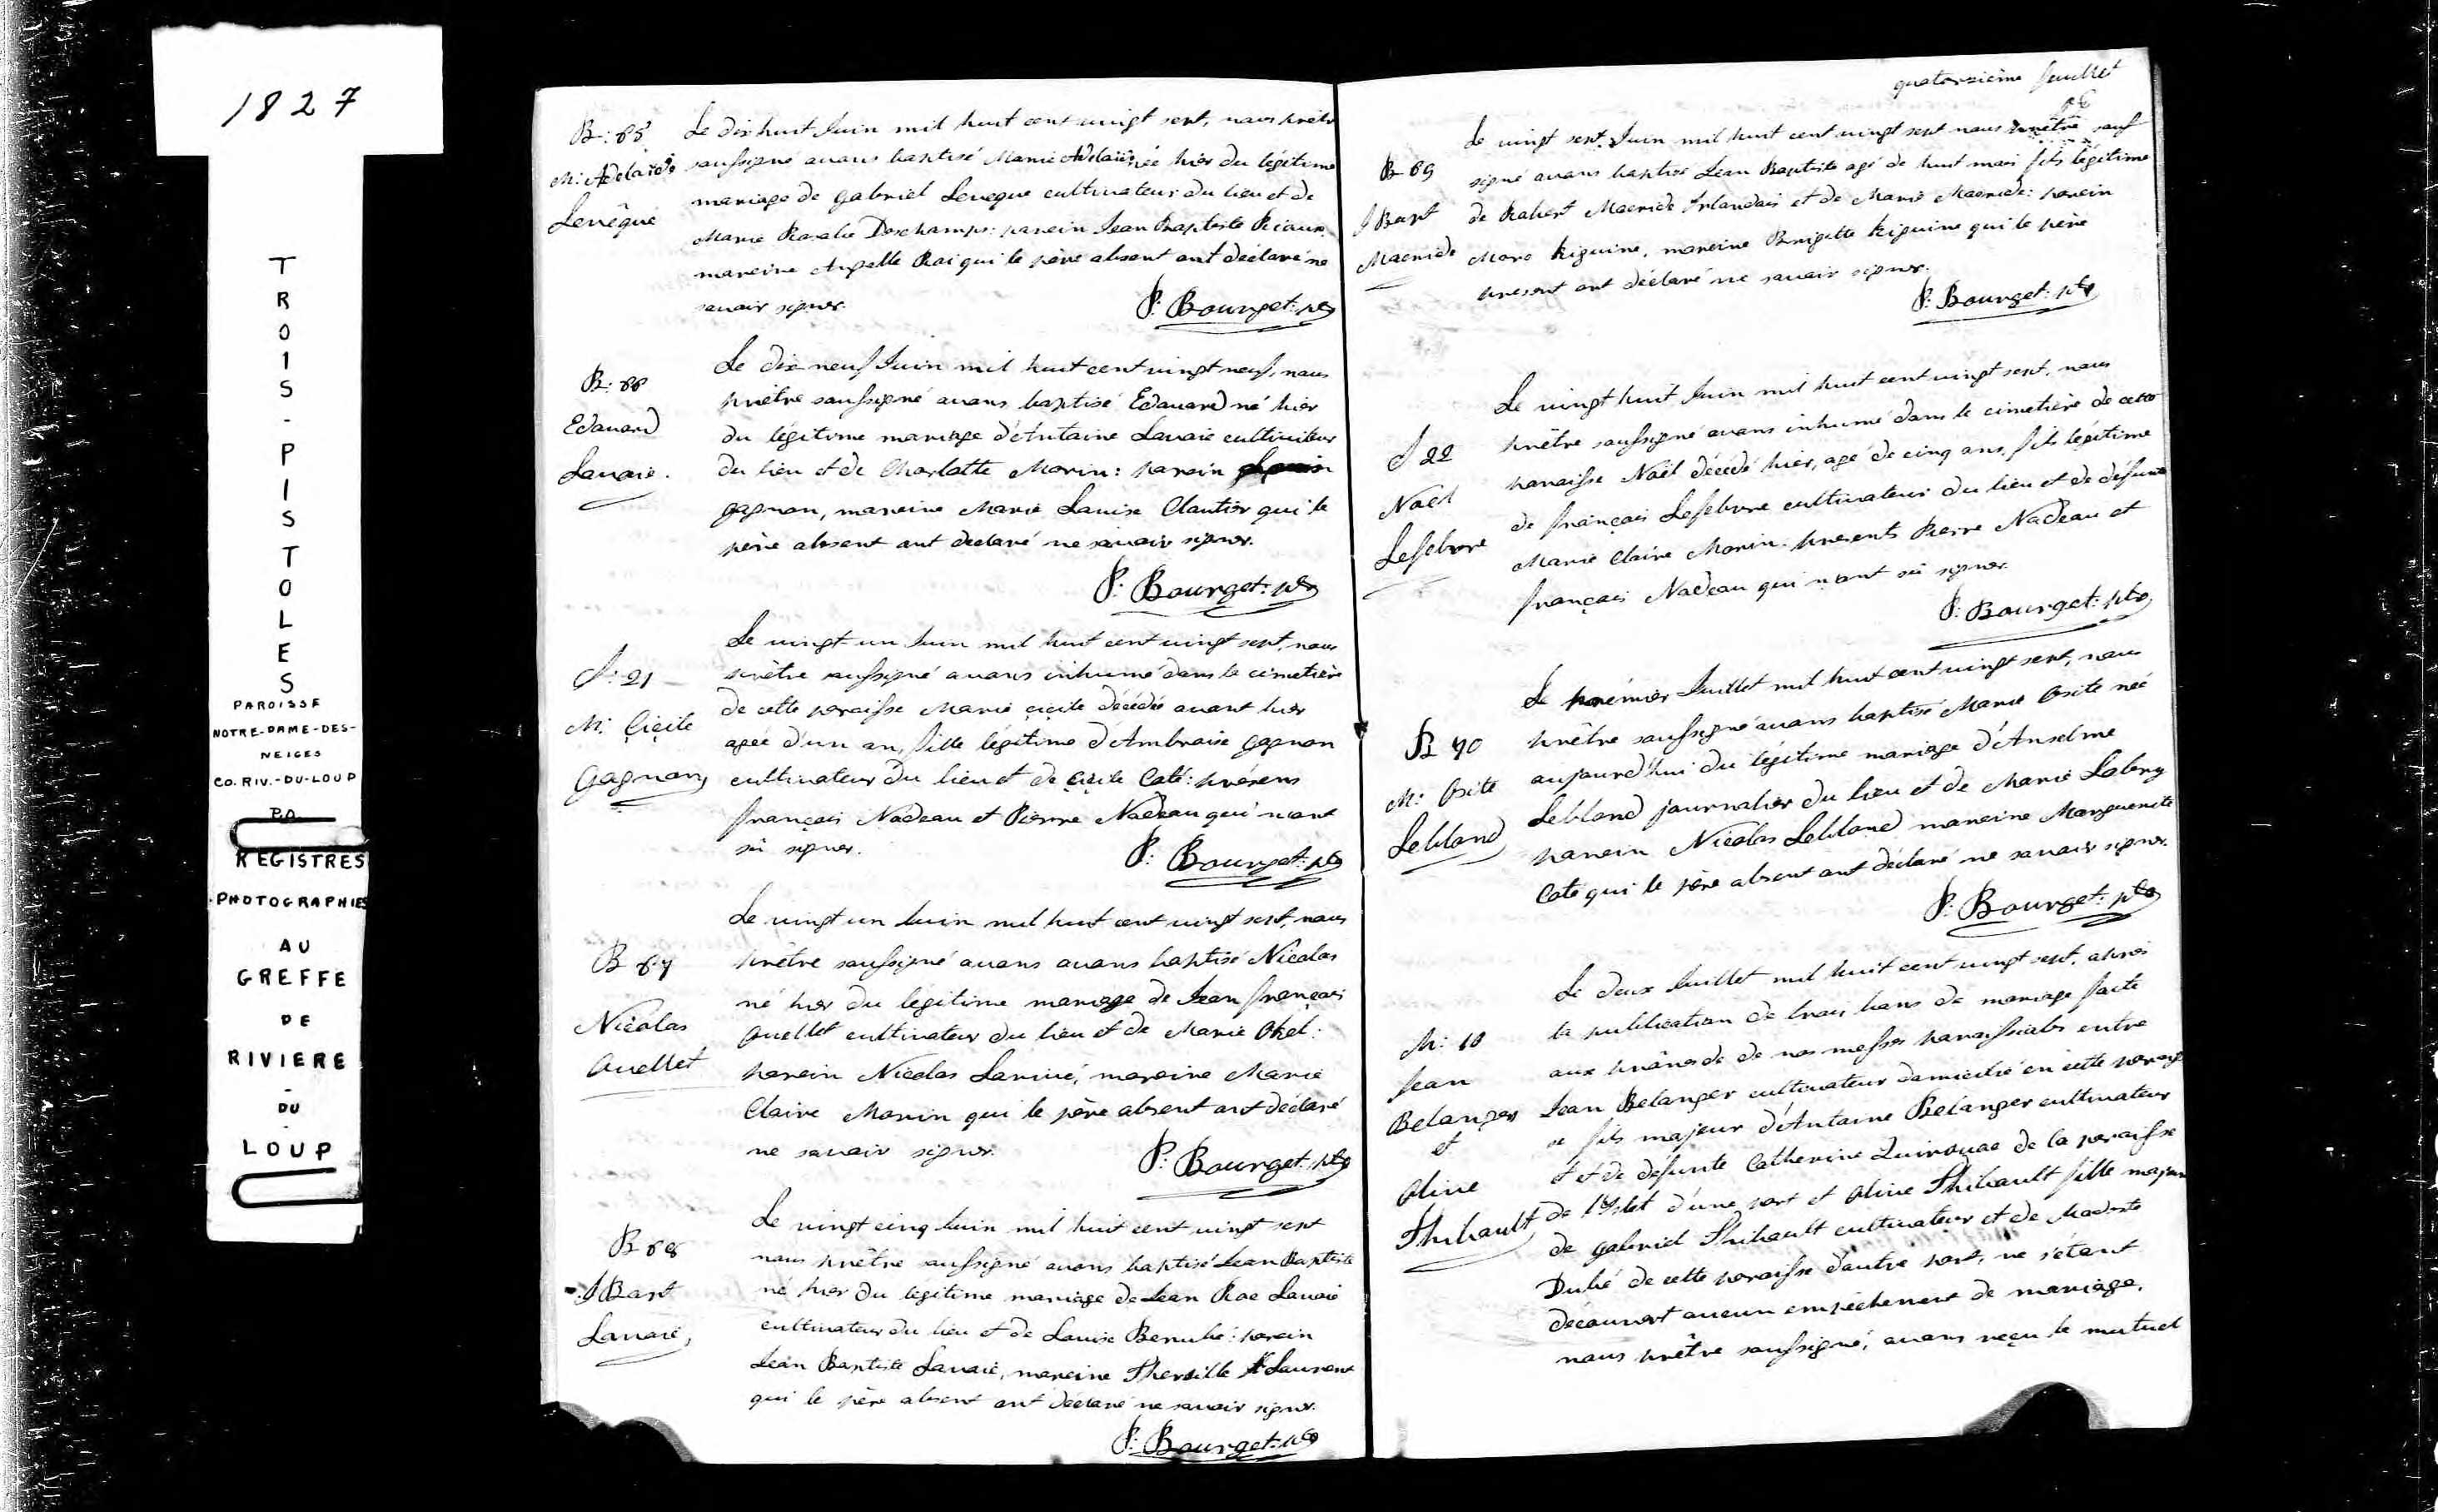 1827
TROIS-PISTOLES
PAROISSE
NOTRE-DAME-DES-
NEIGES
CO. RIV.-DU-LOUP
P.Q.
REGISTRES
PHOTOGRAPHIES
AU
GREFFE
DE
RIVIERE
-
DU
-
LOUP
B: 65
M: Adelaide
Levêque
Le dix huit Juin mil huit cent vingt sept, nous prêtre
soussigné avons baptisé Marie Adelaide née hier du légitime
mariage de gabriel Leveque cultivateur du lieu et de
Marie Rosalie Deschamps: parein Jean Baptiste Rioux
mareine Angelle Roi qui le père absent ont déclaré ne
savoir signer.
P: Bourget: ptre
B: 66
Edouard
Lavoie.
Le dix neuf Juin mil huit cent vingt neuf, nous
prêtre soussigné avons baptisé Edouard né hier
du légitime mariage d'Antoine Lavoie cultiviteur
du lieu et de Charlotte Morin: parein
gagnon, mareine Marie Louise Cloutier qui le
père absent ont declaré ne savoir signer.
P: Bourget: ptre
S: 21
M: Çiçile
Gagnon
Le vingt un Juin mil huit cent vingt sept, nous
prêtre soussigné avons inhumé dans le cimetière
de cette paroisse Marie çiçile décédée avant hier
agée d'un an, fille légitime d'Ambroise gagnon
cultivateur du lieu et de çiçile Coté: présens
françois Nadeau et Pierre Nadeau qui n'ont
sû signer.
P: Bourget: ptre
B 67
Nicolas
Ouellet
Le vingt un Juin mil huit cent vingt sept, nous
prêtre soussigné avons avons baptisé Nicolas
né hier du légitime mariage de Jean françois
Ouellet cultivateur du lieu et de Marie Otel:
parein Nicolas Larivé, mareine Marie
Claire Morin qui le père absent ont déclaré
ne savoir signer.
P: Bourget: ptre
B 68
J Bapt
Lavoie,
Le vingt cinq Juin mil huit cent vingt sept
nous prêtre soussigné avons baptisé Jean Baptiste
né hier du légitime mariage de Jean Roc Lavoie
cultivateur du lieu et de Louise Berubé: parein
Jean Baptiste Lavoie, mareine Thersille St Laurent
qui le père absent ont déclaré ne savoir signer.
P: Bourget: ptre
quatorzième feuillet
B 69
J Bapt
Macnide
Le vingt sept Juin mil huit cent vingt sept nous prêtre sous
signé avons baptisé Jean Baptiste agé de huit mois fils légitime
de Robert Macnide Irlandais et de Marie Macnide: parein
Marc Kiguine, mareine Brigitte Kiguine qui le père
present ont déclaré ne savoir signer.
P: Bourget: ptre
S 22
Noël
Lefebvre
Le vingt huit Juin mil huit cent vingt sept, nous
prêtre soussigné avons inhumé dans le cimetière de cette
paroisse Noël décédé hier, agé de cinq ans, fils légitime
de françois Lefebvre cultivateur du lieu et de défunte
Marie Claire Morin: presents Pierre Nadeau et
françois Nadeau qui n'ont sû signer.
P: Bourget: ptre
B 70
M: Osite
Leblond
Le premier Juillet mil huit cent vingt sept, nous
prêtre soussigné avons baptisé Marie Osite née
aujourd'hui du légitime mariage d'Anselme
Leblond journalier du lieu et de Marie Labry
parein Nicolas Leblond mareine Marguerite
Coté qui le père absent ont déclaré ne savoir signer.
P: Bourget: ptre
M: 10
Jean
Belanger
et
Olive
Thibault
Le deux Juillet mil huit cent vingt sept, après
la publication de trois bans de mariage faite
aux prônes de de nos messes paroissiales entre
Jean Belanger cultivateur domicilié en cette parois
se fils majeur d'Antoine Belanger cultivateur
et et de défunte Catherine Quirouac de la paroisse
de l'Islet d'une part et Olive Thibault fille majeure
de gabriel Thibault cultivateur et de Modeste
Dubé de cette paroisse d'autre part, ne s'étant
découvert aucun empêchement de mariage,
nous prêtre soussigné, avons reçu le mutuel